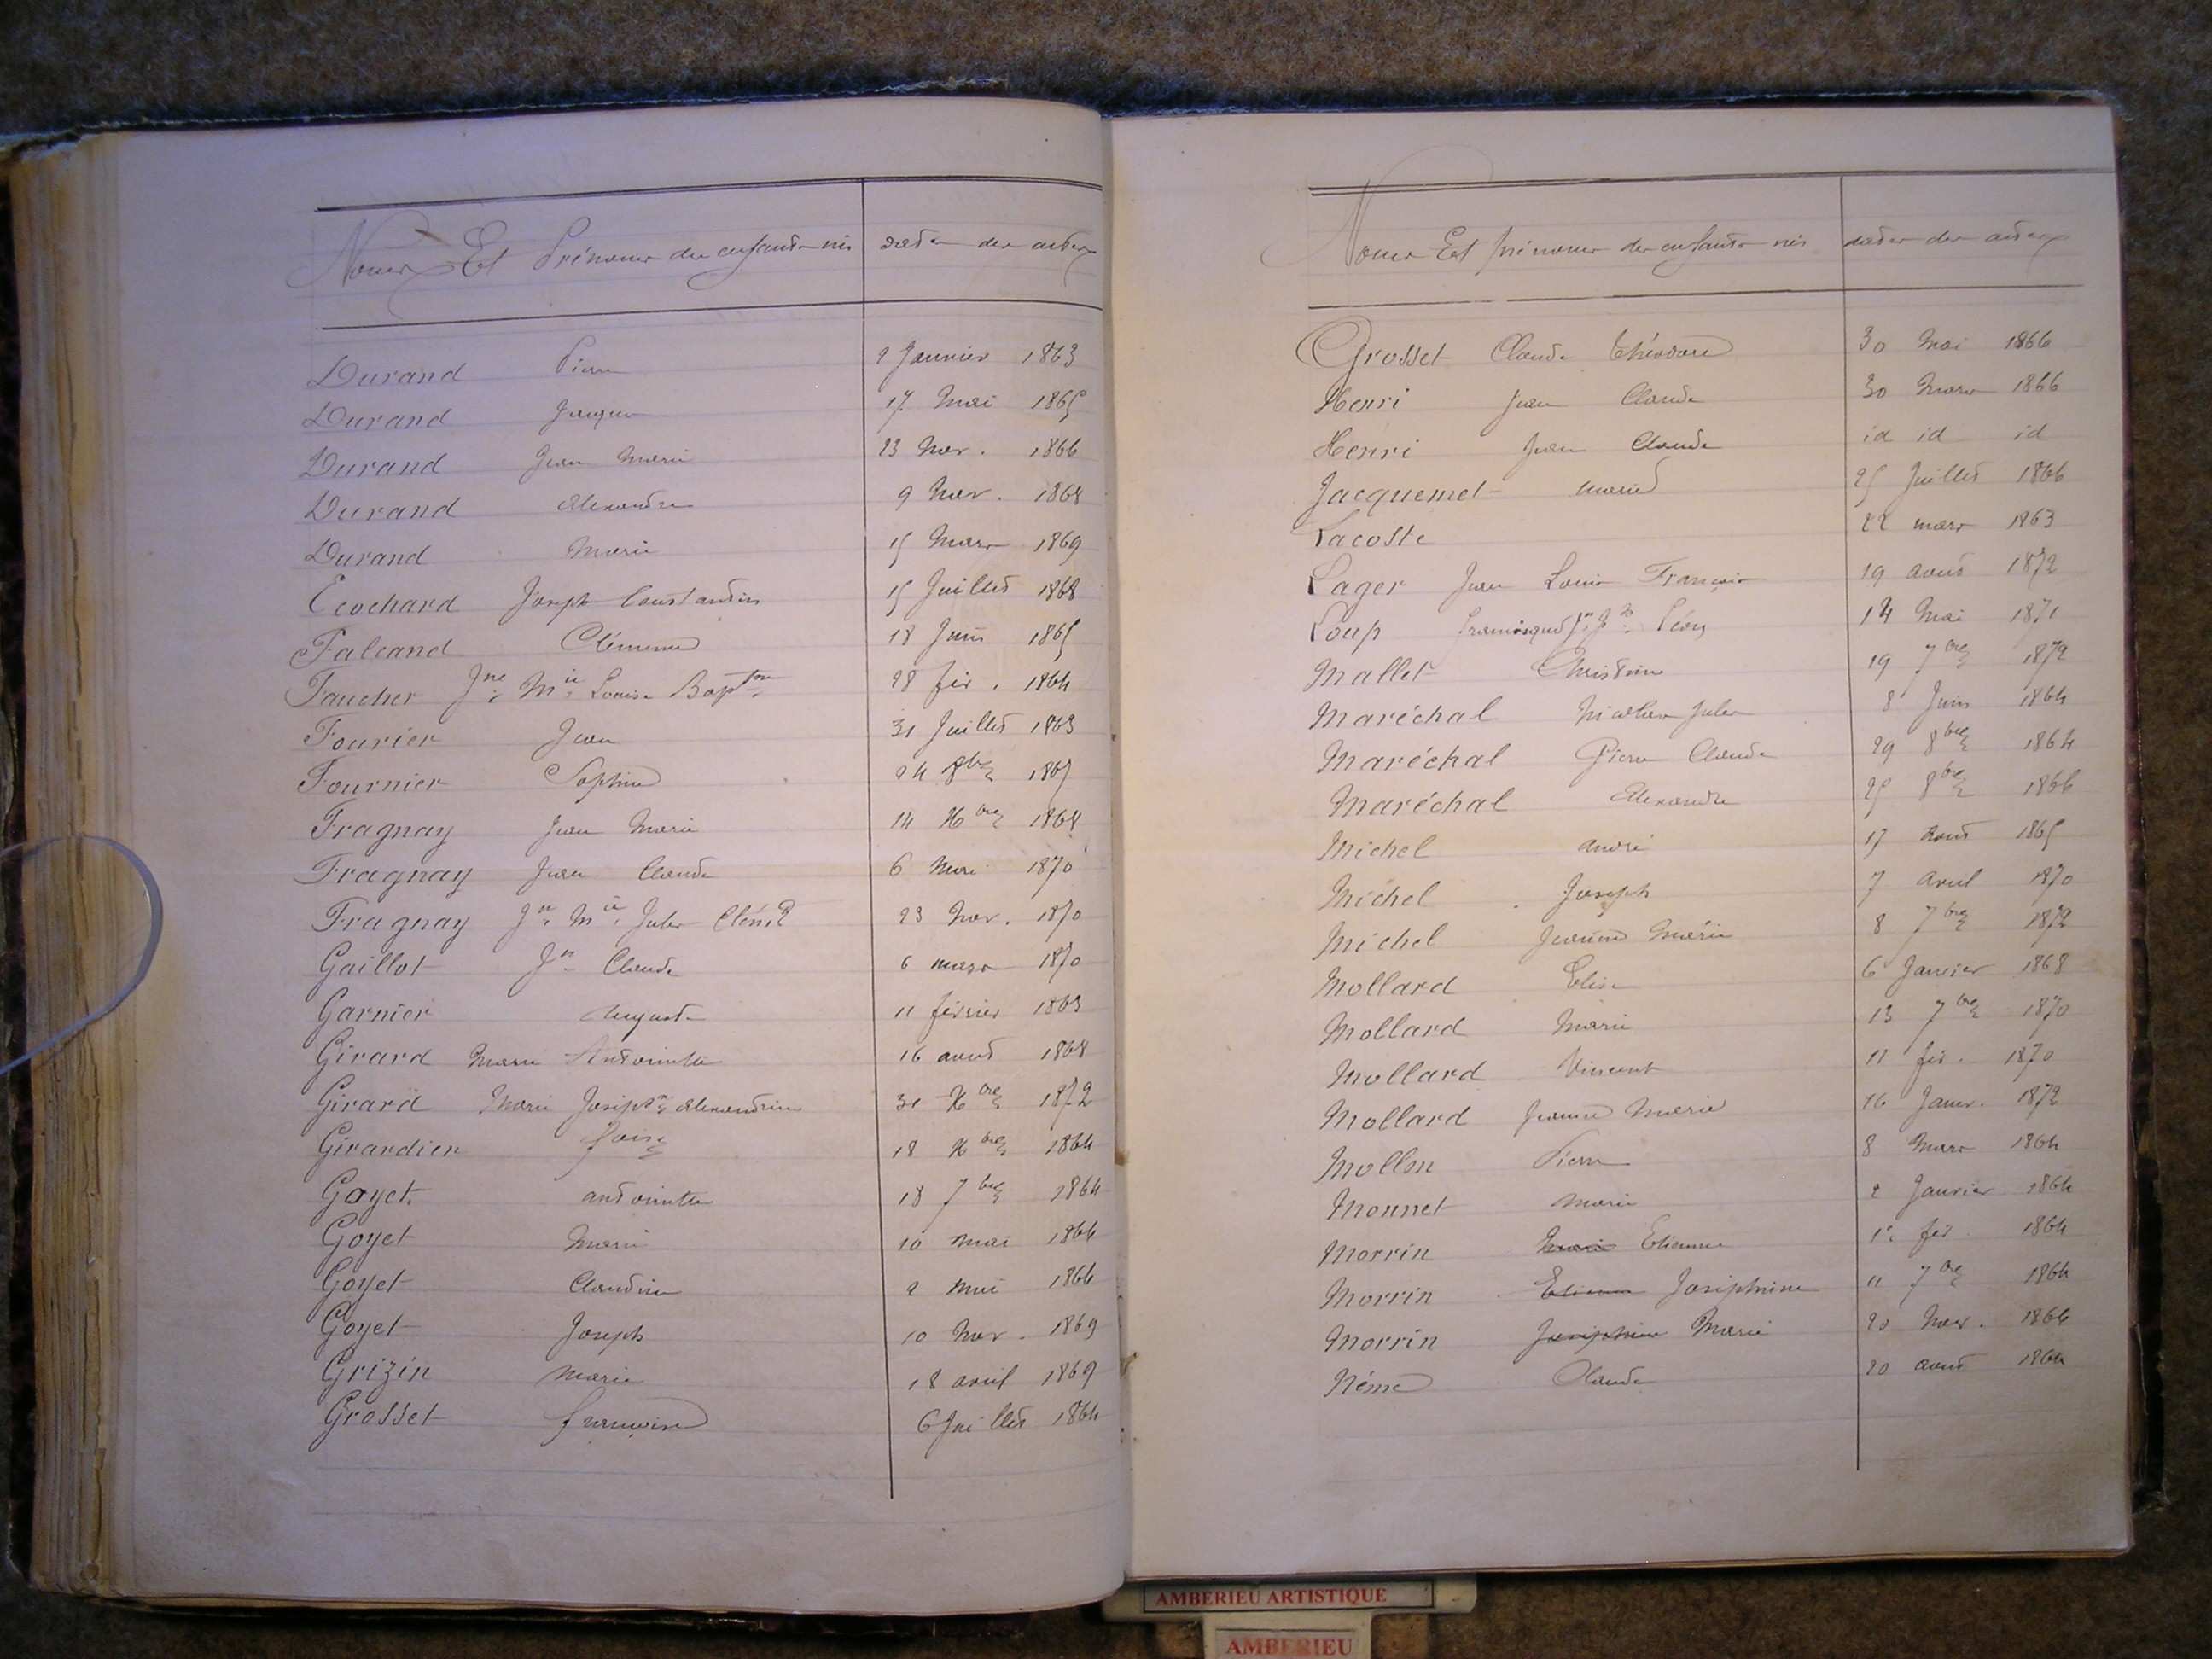 Noms Et Prénoms des enfants nés dates des actes
Durand Pierre 2 Janvier 1863
Durand Jacques 17 Mai 1865
Durand Jean Marie 23 Nov. 1866
Durand Alexandre 9 Nov. 1868
Durand Marie 15 Mars 1869
Ecochard Joseph Constantin 15 Juillet 1868
Falcand Clémence 18 Juin 1865
Faucher Jne Mie Louise Bapt 28 fév. 1864
Fourier Jean 31 Juillet 1863
Fournier Sophie 24 8bre 1865
Fragnay Jean Marie 14 Xbre 1868
Fragnay Jean Claude 6 Mai 1870
Fragnay Jn Mie Jules 23 Nov. 1870
Gaillot Jn Claude 6 mars 1870
Garnier Auguste 11 février 1863
Girard Marie Antoinette 16 août 1868
Girard Marie Josephe Alexandrine 31 Xbre 1872
Girardier 18 Xbre 1864
Goyet antoinette 18 7bre 1864
Goyet Marie 10 mai 1864
Goyet Claudine 2 Mai 1866
Goyet Joseph 10 Nov. 1869
Grizin Marie 18 avril 1869
Grosset françoise 6 Juillet 1864
Noms Et prénoms des enfants nés dates des actes
Grosset Claude Théodore 30 Mai 1866
Henri Jean Claude 30 Mars 1866
Henri Jean Claude id id id
Jacquemet marie 25 Juillet 1866
Lacoste 22 mars 1863
Lager Jean Louis François 19 août 1872
Loup 14 Mai 1871
Mallet Christine 19 7bre 1872
Maréchal Jules 8 Juin 1864
Maréchal Pierre Claude 29 8bre 1864
Maréchal Alexandre 25 8bre 1866
Michel andré 17 août 1865
Michel Joseph 7 avril 1870
Michel Jeanne Marie 8 7bre 1872
Mollard Elise 6 Janvier 1868
Mollard Marie 13 7bre 1870
Mollard Vincent 11 fév. 1870
Mollard Jeanne Marie 16 Janv. 1872
Mollon Pierre 8 Mars 1864
Monnet Marie 2 Janvier 1864
Morrin Marie Etienne 1er fév 1864
Morrin Etienne Joséphine 11 7bre 1864
Morrin Joséphine Marie 20 Nov. 1866
Néme Claude 20 août 1864
AMBERIEU ARTISTIQUE
AMBERIEU